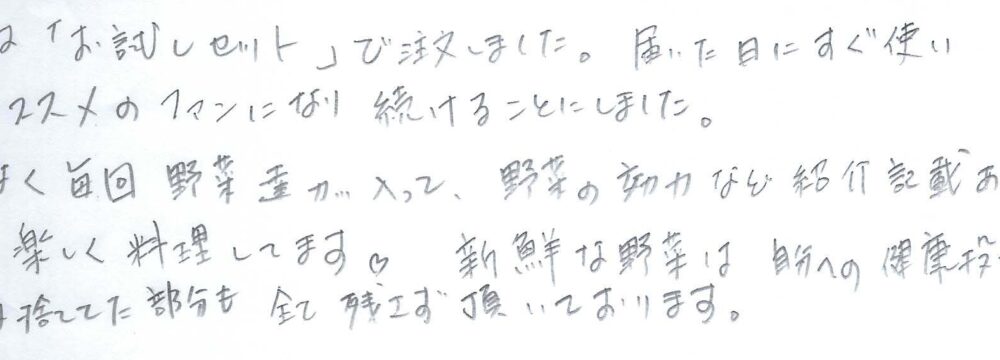 「お試しセット」で注文しました。届いた日にすぐ使い
ススメのファンになり続けることにしました。
く毎回野菜 が入って、野菜の効力など紹介記載あ
楽しく料理してます♡ 新鮮な野菜は自分への健康投
捨ててた部分も全て残さず頂いております。